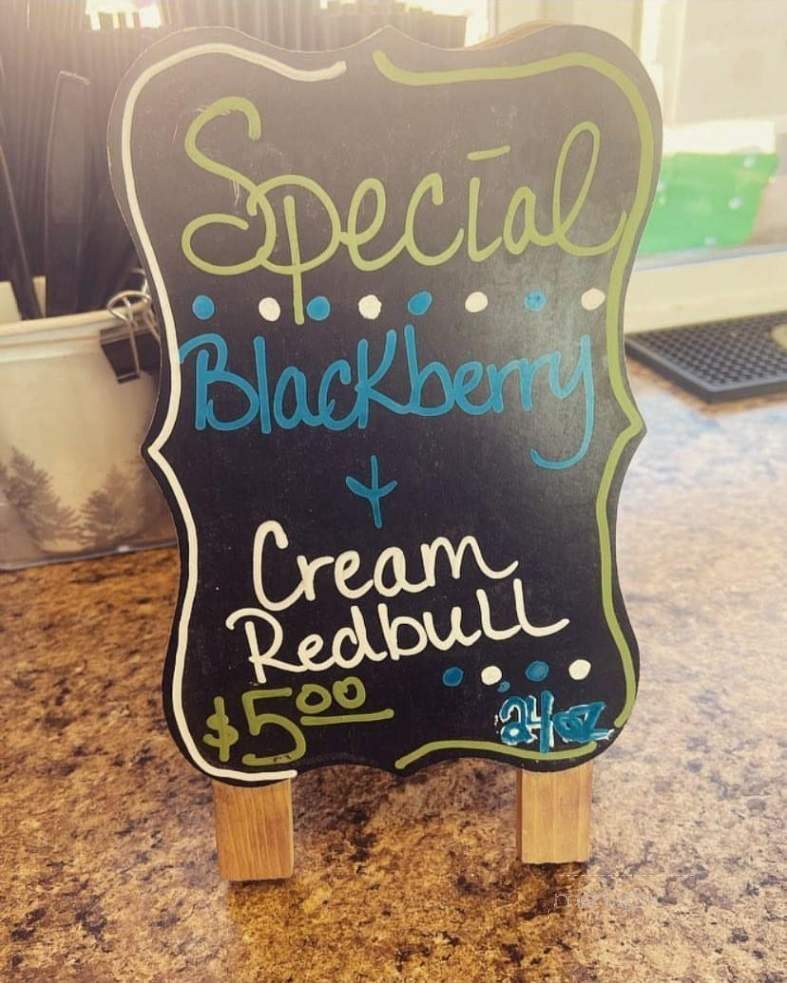 Special
Blackberry
+
Cream
Redbull
$5.00
24oz